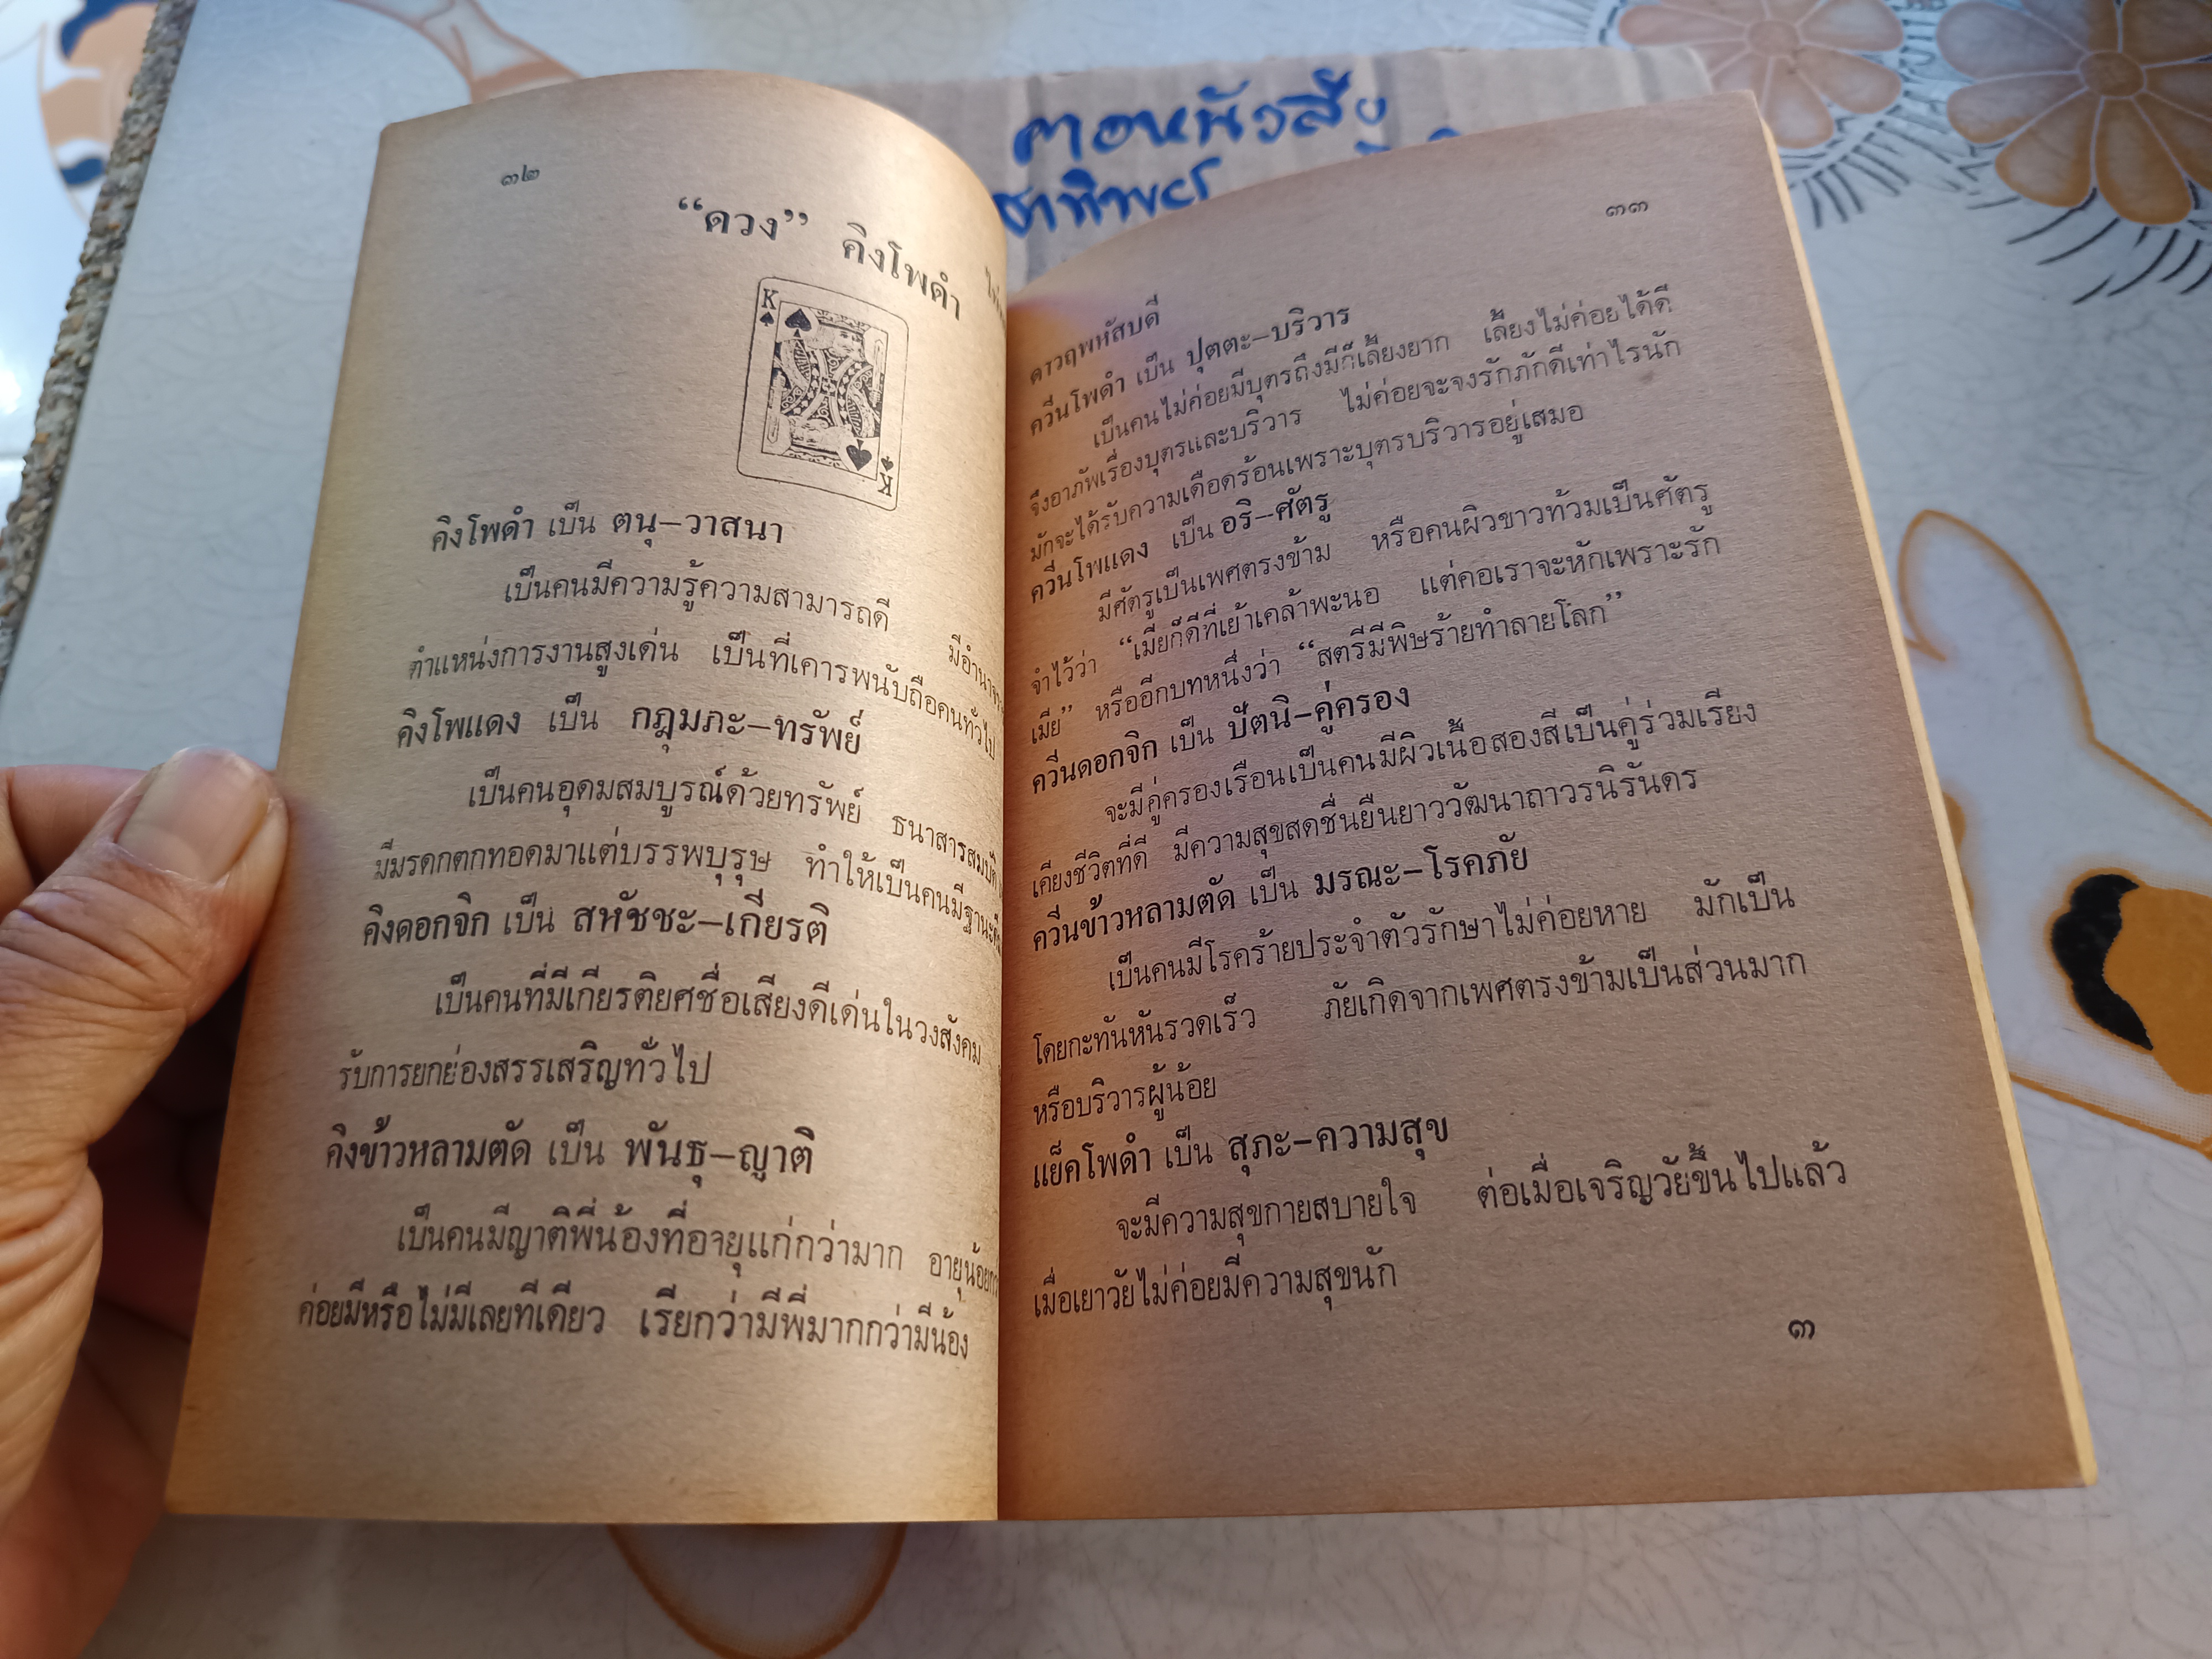 คอหนังสือ
๓๒
“ดวง” คิงโพดำ
K
K
คิงโพดำ เป็น ตนุ–วาสนา
เป็นคนมีความรู้ความสามารถดี
ตำแหน่งการงานสูงเด่น เป็นที่เคารพนับถือคนทั่วไป
คิงโพแดง เป็น กฎุมภะ–ทรัพย์
เป็นคนอุดมสมบูรณ์ด้วยทรัพย์ ธนาสารสมบัติ
มีมรดกตกทอดมาแต่บรรพบุรุษ ทำให้เป็นคนมีฐานะ
คิงดอกจิก เป็น สหัชชะ–เกียรติ
เป็นคนที่มีเกียรติยศชื่อเสียงดีเด่นในวงสังคม
รับการยกย่องสรรเสริญทั่วไป
คิงข้าวหลามตัด เป็น พันธุ–ญาติ
เป็นคนมีญาติพี่น้องที่อายุแก่กว่ามาก
ค่อยมีหรือไม่มีเลยทีเดียว เรียกว่ามีพี่มากกว่ามีน้อง
๓๓
ดาวฤพหัสบดี
ควีนโพดำ เป็น ปุตตะ–บริวาร
เป็นคนไม่ค่อยมีบุตรถึงมีก็เลี้ยงยาก เลี้ยงไม่ค่อยได้ดี
จึงอาภัพเรื่องบุตรและบริวาร ไม่ค่อยจะจงรักภักดีเท่าไรนัก
มักจะได้รับความเดือดร้อนเพราะบุตรบริวารอยู่เสมอ
ควีนโพแดง เป็น อริ–ศัตรู
มีศัตรูเป็นเพศตรงข้าม หรือคนผิวขาวท้วมเป็นศัตรู
จำไว้ว่า “เมียก็ดีที่เย้าเคล้าพะนอ แต่คอเราจะหักเพราะรัก
เมีย” หรืออีกบทหนึ่งว่า “สตรีมีพิษร้ายทำลายโลก”
ควีนดอกจิก เป็น ปัตนิ–คู่ครอง
จะมีคู่ครองเรือนเป็นคนมีผิวเนื้อสองสีเป็นคู่ร่วมเรียง
เคียงชีวิตที่ดี มีความสุขสดชื่นยืนยาววัฒนาถาวรนิรันดร
ควีนข้าวหลามตัด เป็น มรณะ–โรคภัย
เป็นคนมีโรคร้ายประจำตัวรักษาไม่ค่อยหาย มักเป็น
โดยกะทันหันรวดเร็ว ภัยเกิดจากเพศตรงข้ามเป็นส่วนมาก
หรือบริวารผู้น้อย
แย็คโพดำ เป็น สุภะ–ความสุข
จะมีความสุขกายสบายใจ ต่อเมื่อเจริญวัยขึ้นไปแล้ว
เมื่อเยาวัยไม่ค่อยมีความสุขนัก
๓